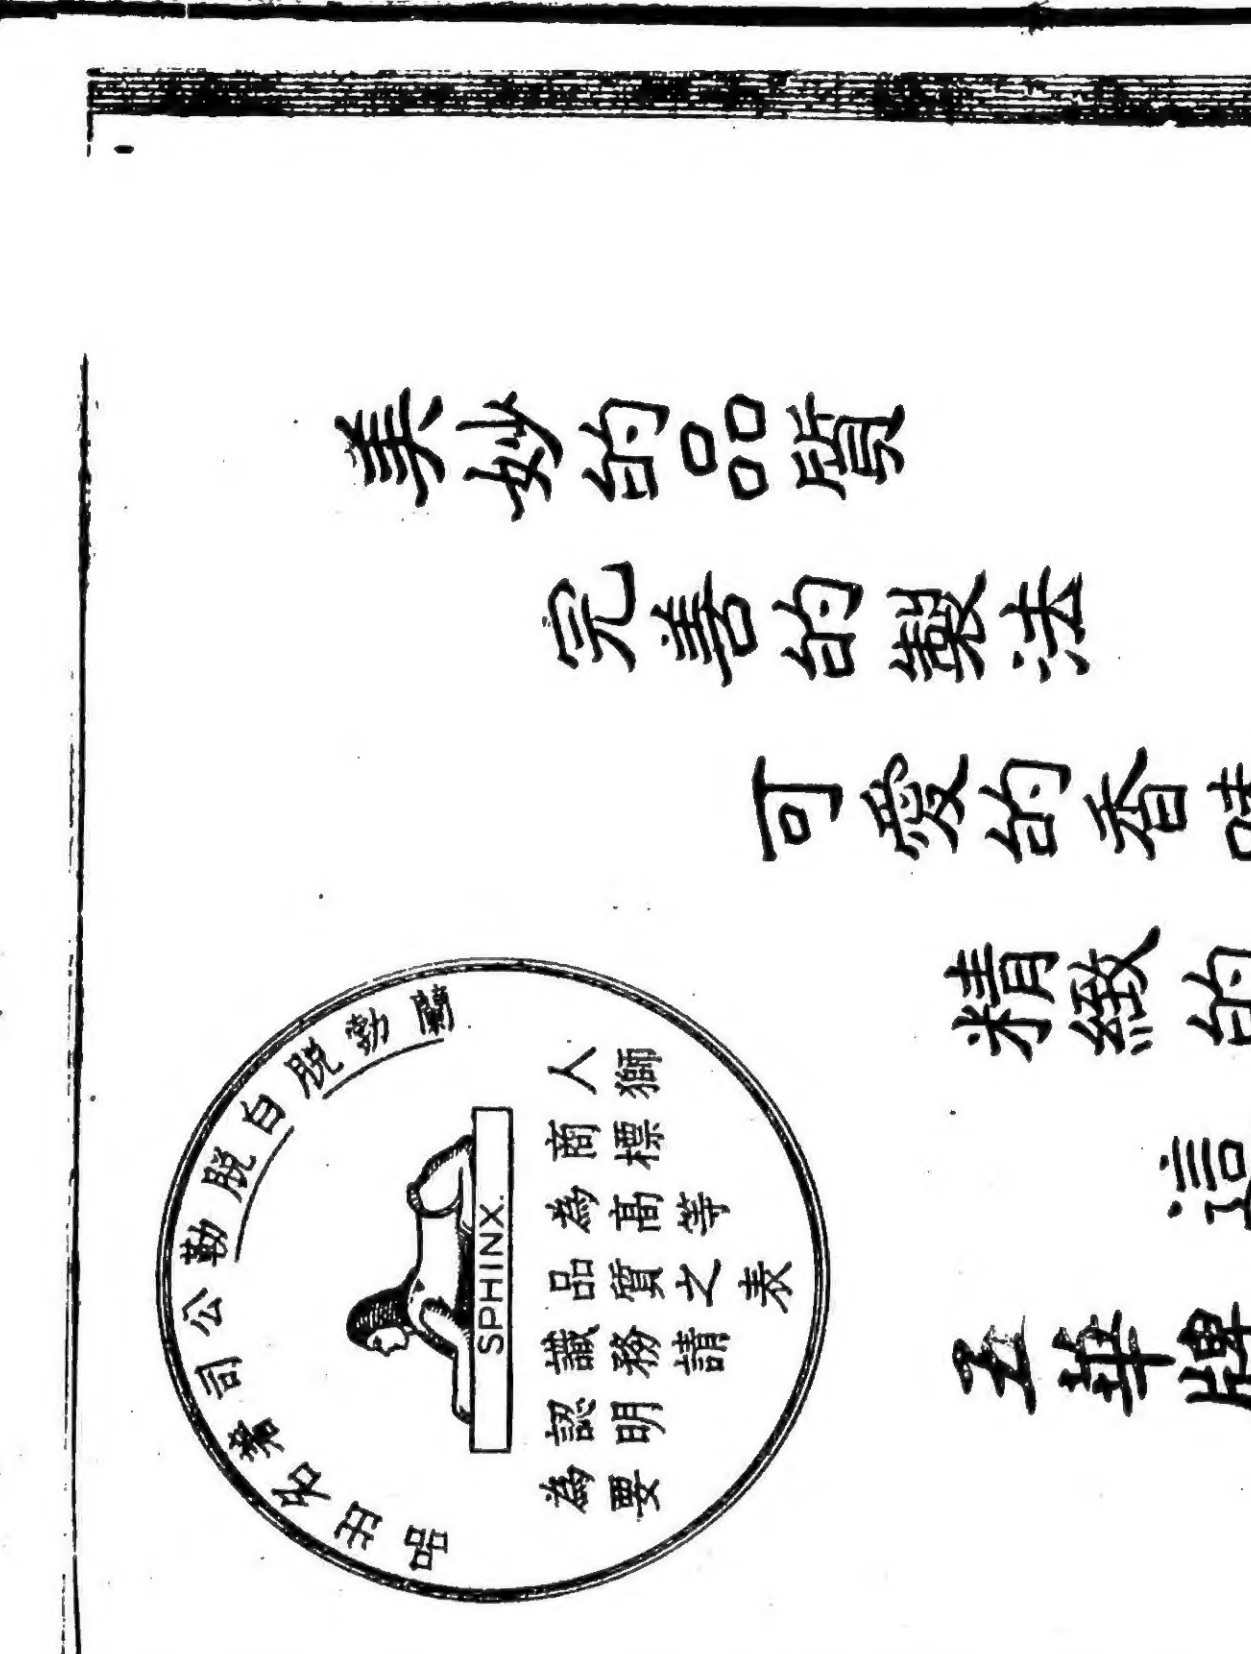 美妙的品質
完善的製法
可愛的香味
精緻的
這
五華牌
蘭勃脫白脫勒公司著名出品
SPHINX.
人獅
商標
為高等
品質之表
識務請
認明
為要